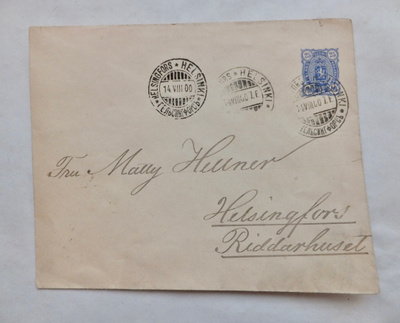 HELSINGFORS ★ HELSINKI
14 VIII 00
ГЕЛЬСИНГФОРСЪ
HELSINKI
VIII 00 7.F
HELSINKI
VIII 00 7.F
ГЕЛЬСИНГФОРСЪ
Fru Mally Hellner
Helsingfors
Riddarhuset